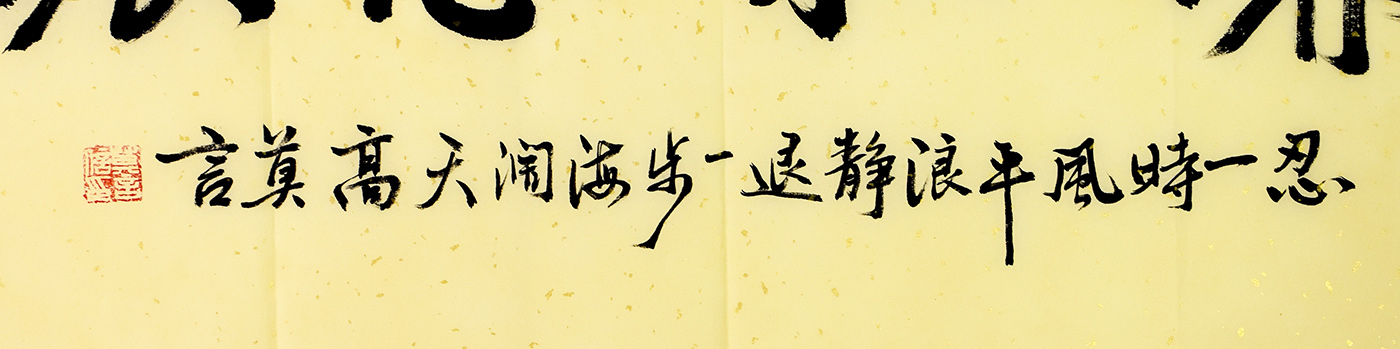 忍一時風平浪静退一步海阔天高莫言